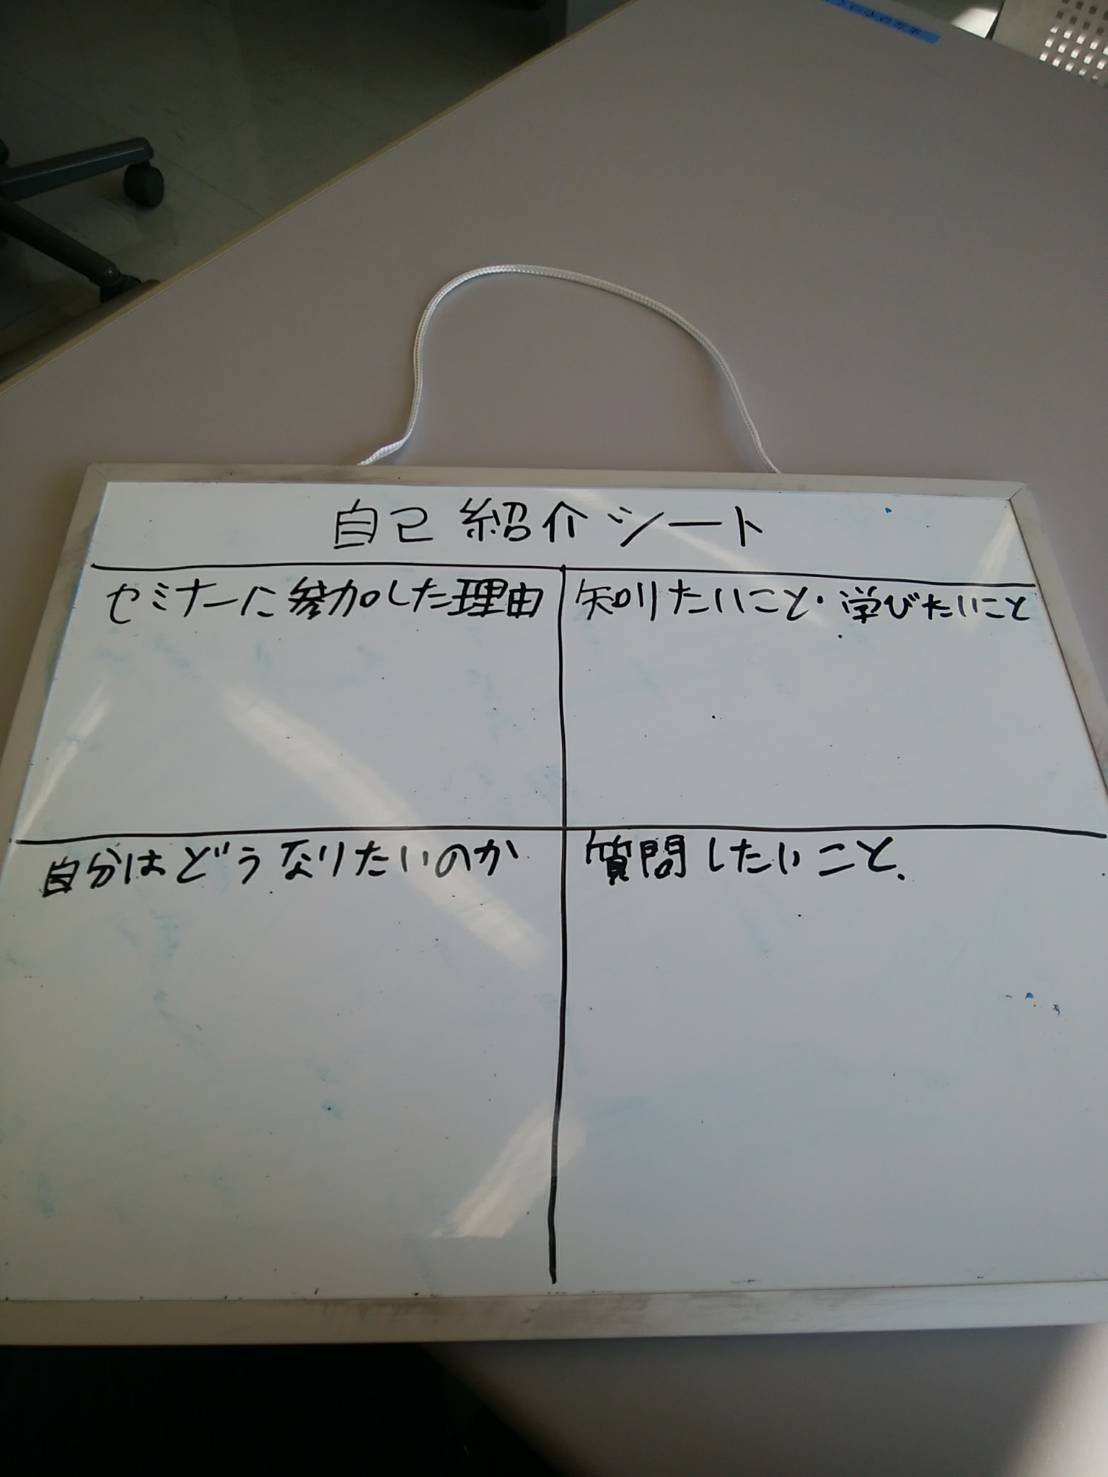 自己紹介シート
セミナーに参加した理由
知りたいこと・学びたいこと
自分はどうなりたいのか
質問したいこと.